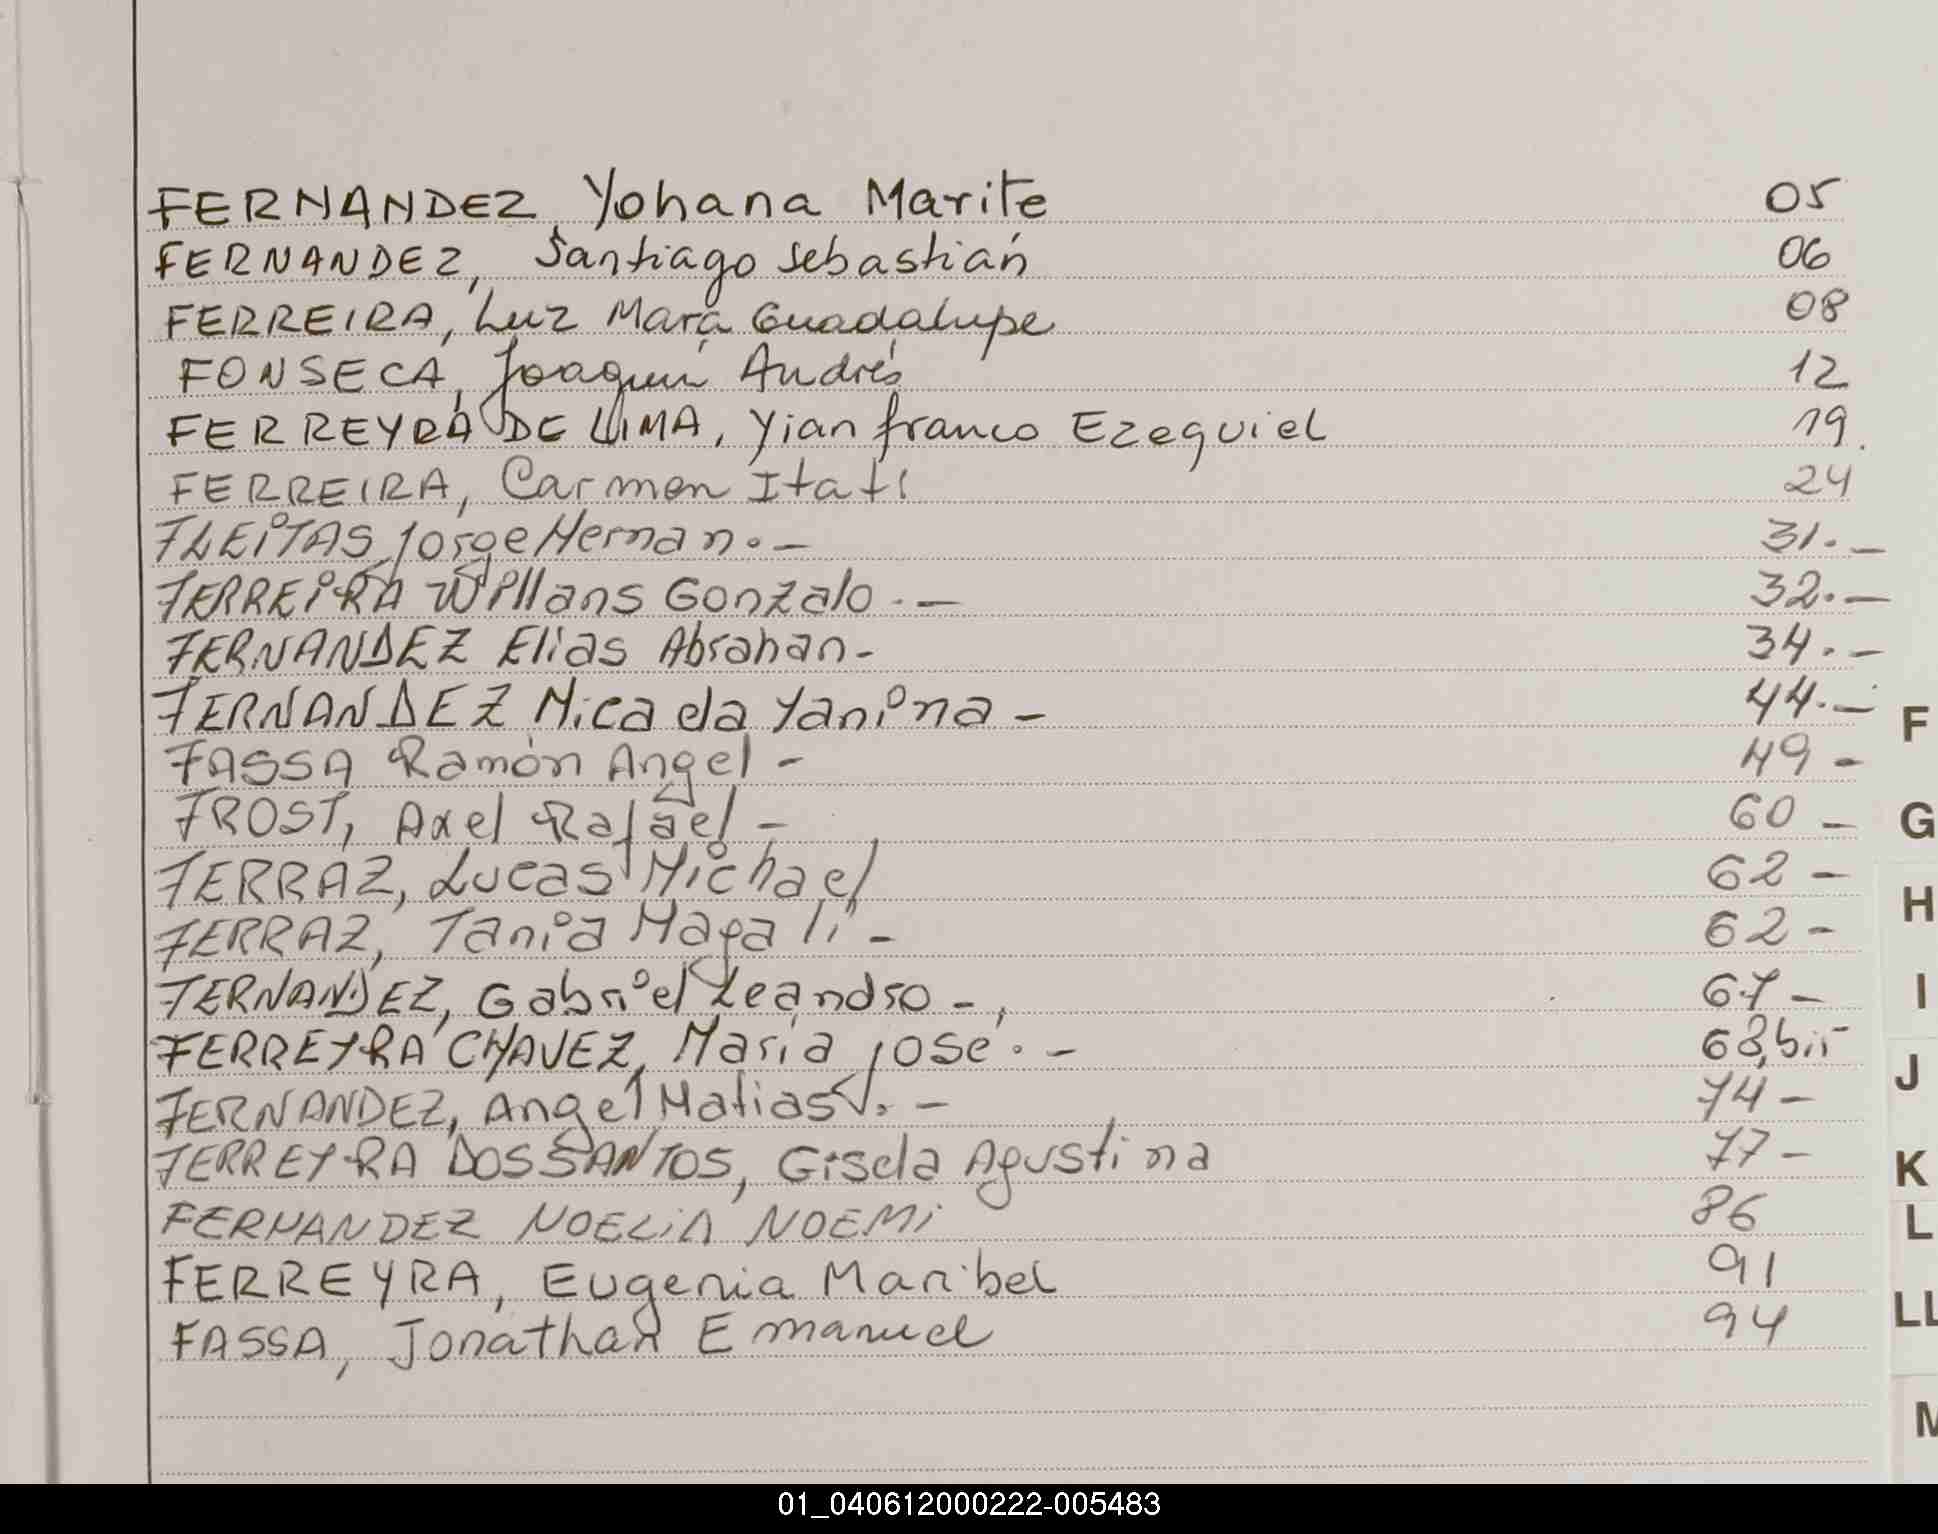 FERNANDEZ, Yohana Marite 05
FERNANDEZ, Santiago Sebastián 06
FERREIRA, Luz Mara Guadalupe 08
FONSECA, Joaquín Andrés 12
FERREYRA DE LIMA, Yianfranco Ezequiel 19.
FERREIRA, Carmen Itatí 24
FLEITAS Jorge Hernan.- 31.-
FERREIRA Willans Gonzalo.- 32.-
FERNANDEZ Elias Abrahan- 34.-
FERNANDEZ Micaela Yanina - 44.-
FASSA Ramón Angel - 49 -
FROST, Axel Rafael - 60 -
FERRAZ, Lucas Michael 62 -
FERRAZ, Tania Magali - 62 -
FERNANDEZ, Gabriel Leandro - 67 -
FERREYRA CHAVEZ, María José.- 68 bis
FERNANDEZ, Angel Matias.- 74 -
FERREYRA DOS SANTOS, Gisela Agustina 77 -
FERNANDEZ NOELIA NOEMI 86
FERREYRA, Eugenia Maribel 91
FASSA, Jonathan Emanuel 94
F
G
H
I
J
K
L
LL
M
01_040612000222-005483